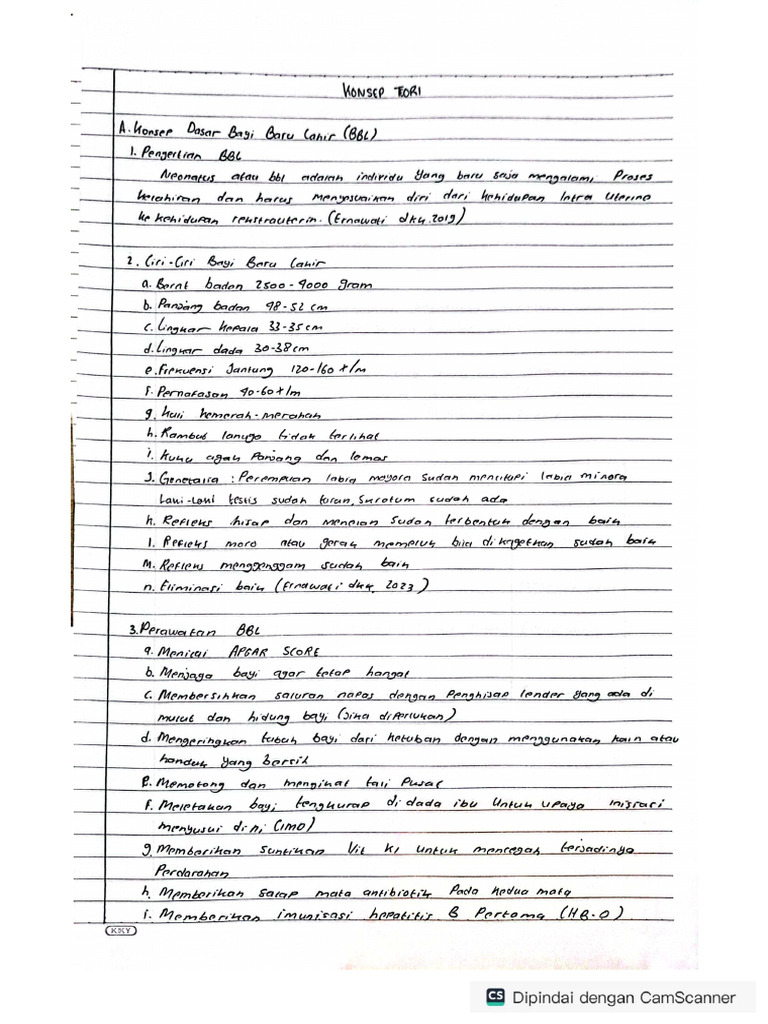 KONSEP TEORI
A. Konsep Dasar Bayi Baru Lahir (BBL)
1. Pengertian BBL
Neonatus atau bbl adalah individu yang baru saja mengalami Proses
kelahiran dan harus menyesuaikan diri dari kehidupan Intra Uterine
ke kehidupan rekstrauterin. (Ernawati dkk. 2019)
2. Ciri-Ciri Bayi Baru Lahir
a. Berat badan 2500-4000 gram
b. Panjang badan 48-52 cm
c. Lingkar kepala 33-35 cm
d. Lingkar dada 30-38 cm
e. Frekuensi Jantung 120-160 x/m
f. Pernafasan 40-60 x/m
g. Kulit kemerah-merahan
h. Rambut lanugo tidak terlihat
i. Kuku agak Panjang dan lemas
J. Genetalia : Perempuan labia mayora sudah menutupi labia minora
Laki-Laki testis sudah turun, Skrotum sudah ada
k. Refleks hisap dan menelan sudah terbentuk dengan baik
l. Refleks moro atau gerak memeluk bila di kagetkan sudah baik
M. Refleks menggenggam sudah baik
n. Eliminasi baik (Ernawati dkk, 2023)
3. Perawatan BBL
a. Menilai APGAR SCORE
b. Menjaga bayi agar tetap hangat
c. Membersihkan saluran napas dengan Penghisap lender yang ada di
mulut dan hidung bayi (Jika diperlukan)
d. Mengeringkan tubuh bayi dari ketuban dengan menggunakan kain atau
handuk yang bersih
e. Memotong dan mengikat tali Pusat
f. Meletakan bayi tengkurap di dada ibu Untuk upaya inisiasi
menyusui dini (IMD)
g. Memberikan suntikan Vit K1 untuk mencegah terjadinya
Perdarahan
h. Memberikan salap mata antibiotik Pada kedua mata
i. Memberikan imunisasi hepatitis B Pertama (HB-0)
KKY
CS Dipindai dengan CamScanner